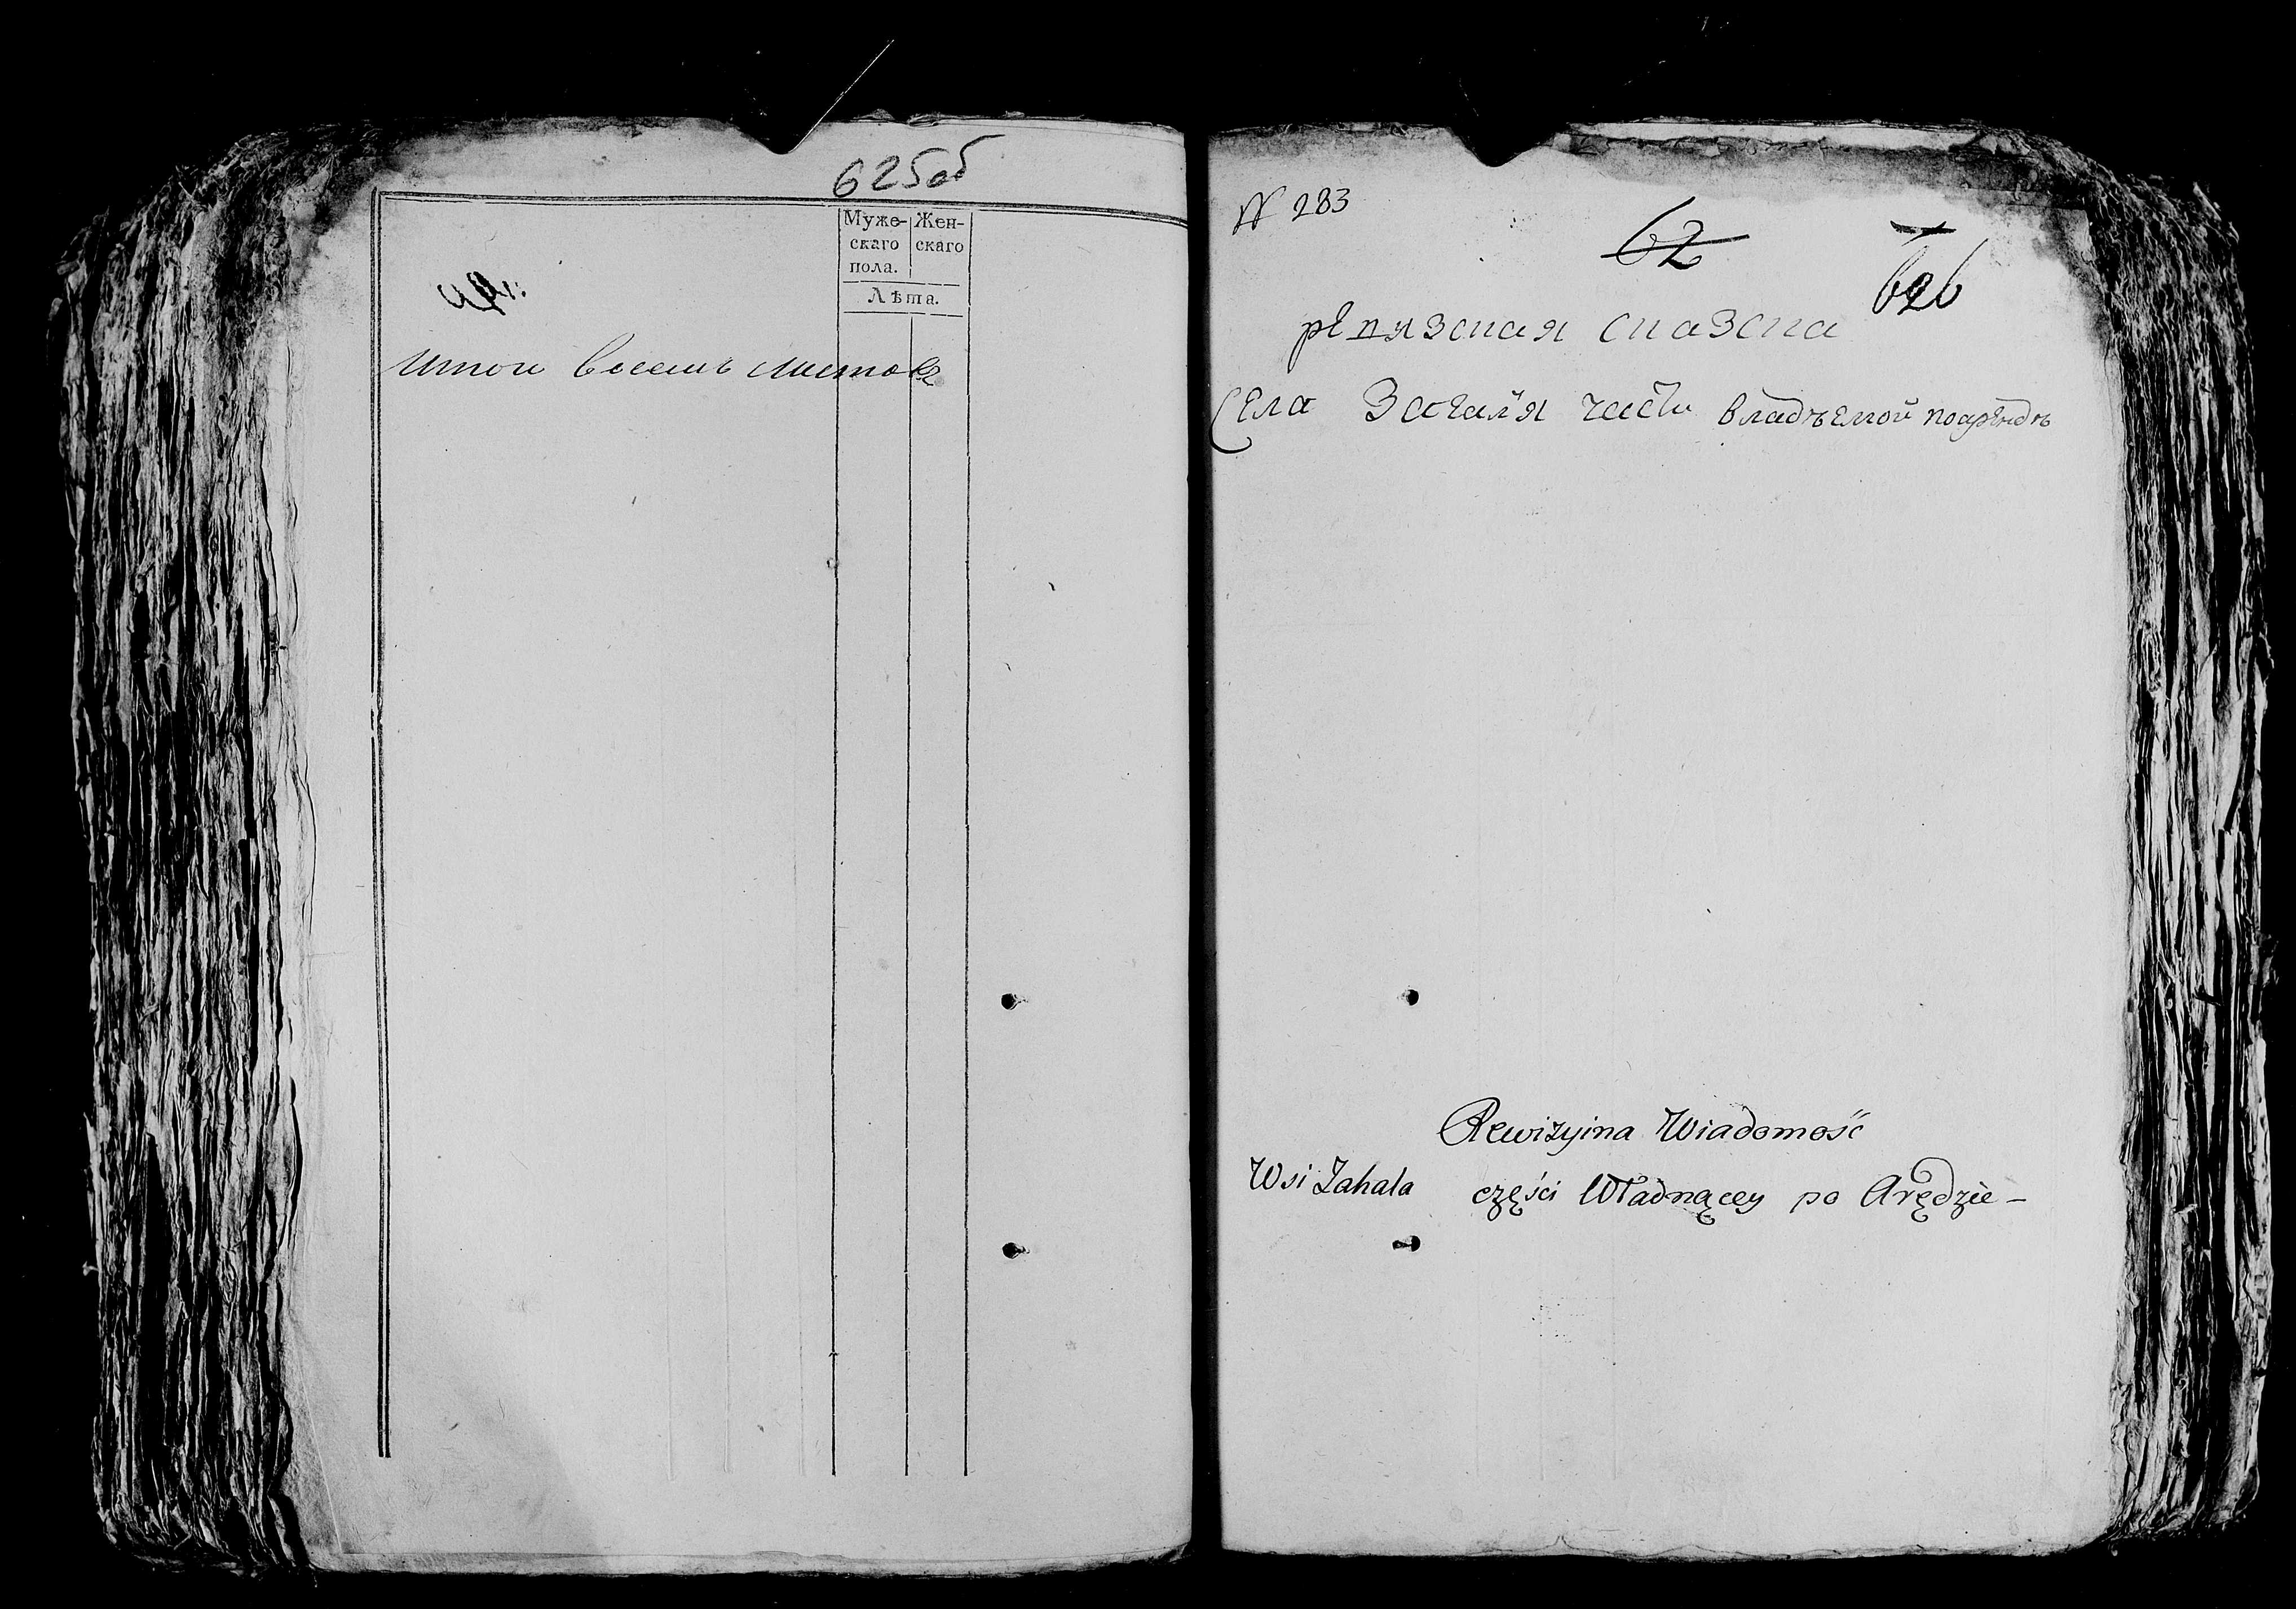 625об
Муже-
скаго
пола.
Жен-
скаго
Лѣта.
Итого восемь листовъ
№ 283
62
626
ревизская сказка
Села Загаля части владѣемой поарендѣ
Rewizyina Wiadomość
Wsi Zahala części Władnącey po Arędzie –